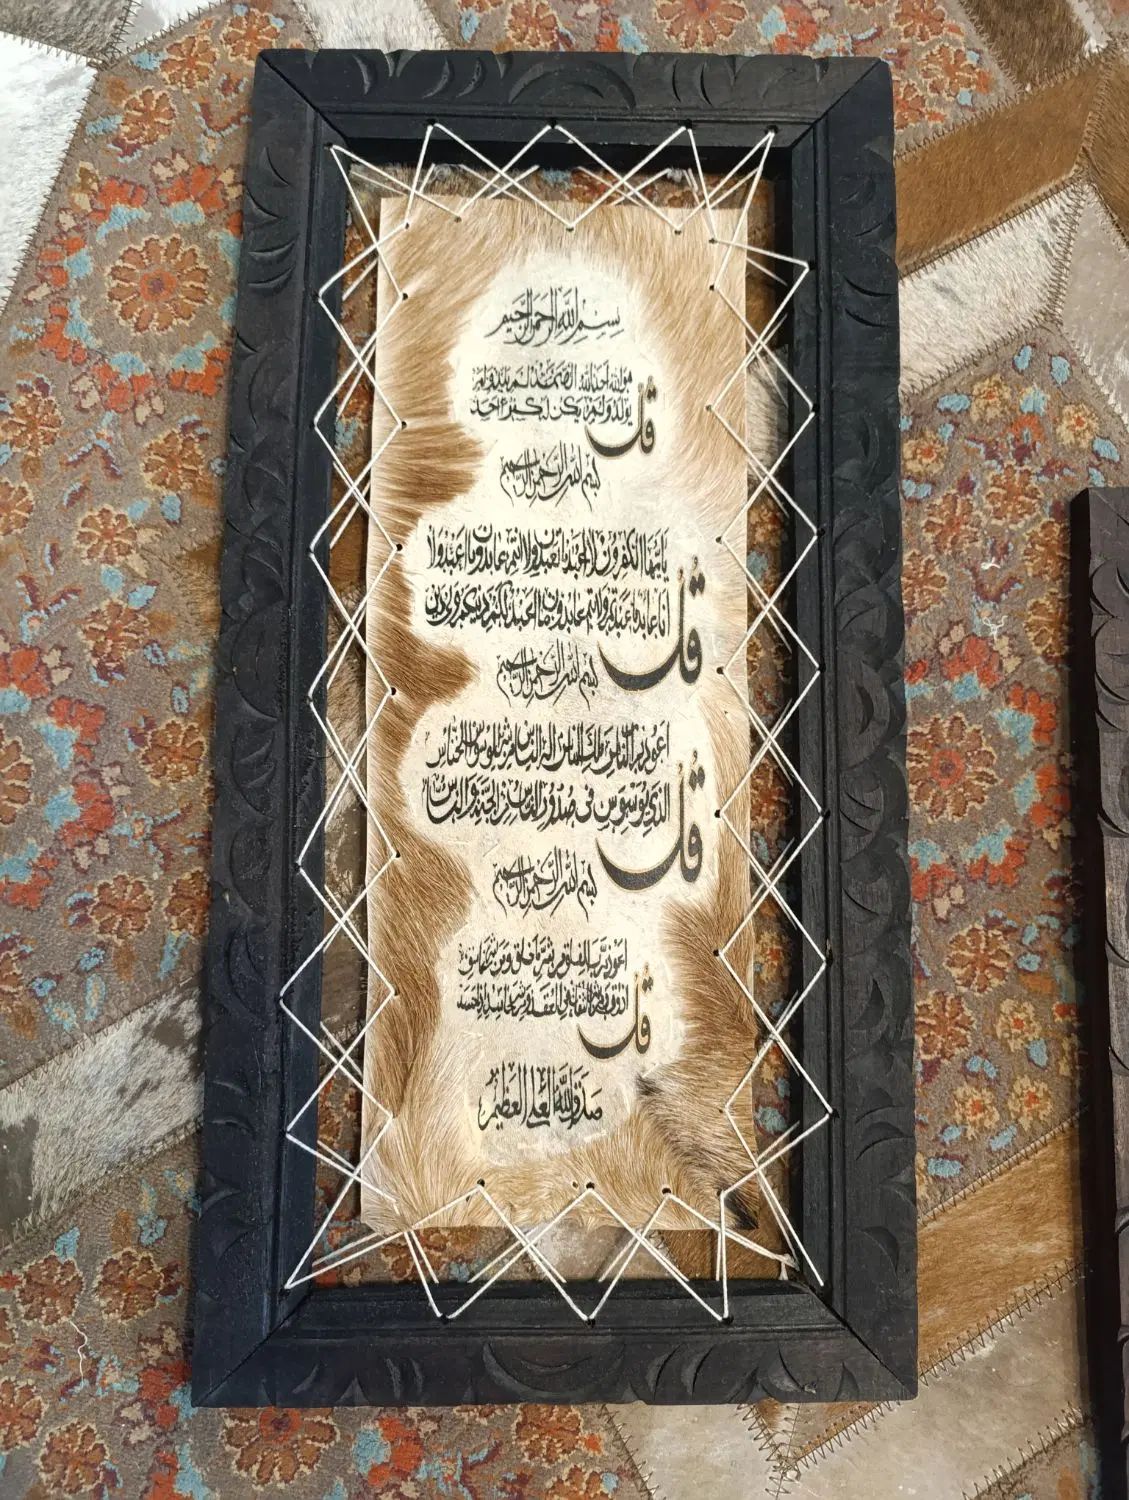 بِسْمِ اللَّهِ الرَّحْمَنِ الرَّحِيمِ
قُلْ هو الله أحد الله الصمد لم يلد ولم
يولد ولم يكن له كفوا احد
بسم الله الرحمن الرحيم
قُلْ يا أيها الكفرون لا اعبد ما تعبدون ولا انتم عابدون ما اعبد ولا
انا عابد ما عبدتم ولا انتم عابدون ما اعبد لكم دينكم ولي دين
بسم الله الرحمن الرحيم
قُلْ اعوذ برب الناس ملك الناس اله الناس من شر الوسواس الخناس
الذي يوسوس في صدور الناس من الجنة والناس
بسم الله الرحمن الرحيم
قُلْ اعوذ برب الفلق من شر ما خلق ومن شر غاسق
اذا وقب ومن شر النفاثات في العقد ومن شر حاسد اذا حسد
صدق الله العلي العظيم